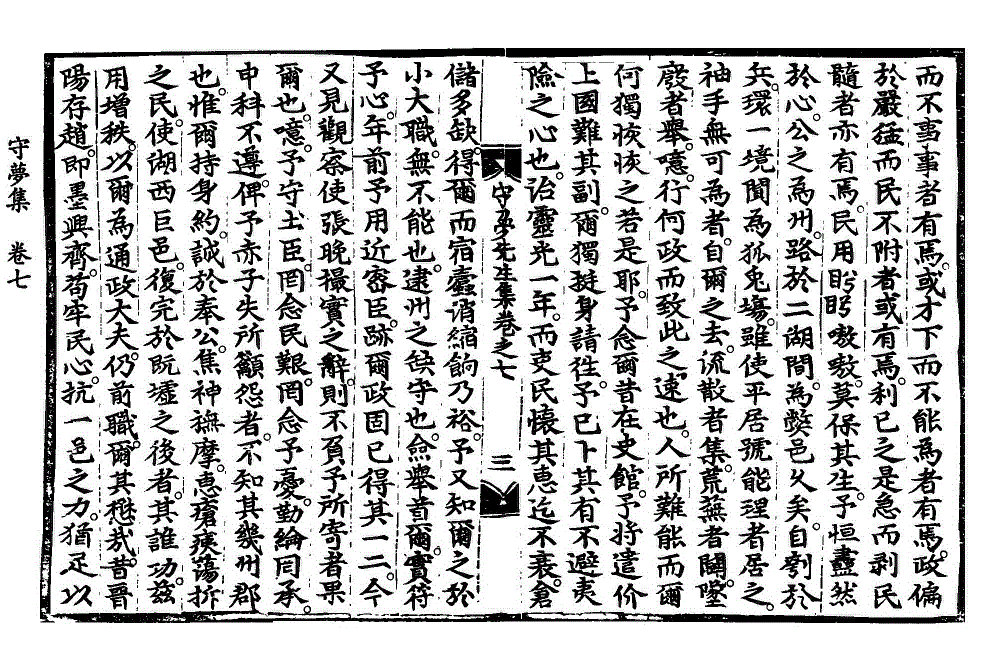 而不事事者有焉或才下而不能為者有焉政偏
於嚴猛而民不附者或有焉利已之是急而剥民
髓者亦有焉民用盻盻嗷嗷莫保其生予恒盡然
於心公之為州路於二湖間為弊邑久矣自剳於
兵環一境闃為狐兎場雖使平居號能理者居之
袖手無可為者自爾之去流散者集荒蕪者闢墜
廢者舉噫行何政而致此之速也人所難能而爾
何獨恢恢之若是耶予念爾昔在史館予將遣价
上國難其副爾獨挺身請徃予已卜其有不避夷
險之心也治靈光一年而吏民懷其惠迄不衰倉
守夢先生集卷之七
三
儲多缺得爾而宿蠹消縮餉乃裕予又知爾之於
小大職無不能也逮州之缺守也僉舉首爾實符
予心年前予用近密臣跡爾政固已得其一二今
又見觀察使張晚撮實之辭則不負予所寄者果
爾也噫予守土臣罔念民艱罔念予憂勤綸罔承
申科不遵俾予赤子失所籲怨者不知其幾州郡
也惟爾持身約誠於奉公焦神撫摩惠瘡痍蕩析
之民使湖西巨邑復完於阮墟之後者其誰功玆
用增秩以爾為通政大夫仍前職爾其懋㢤昔晋
陽存趙即墨興齊苟牢民心抗一邑之力猶足以
守夢集　卷七